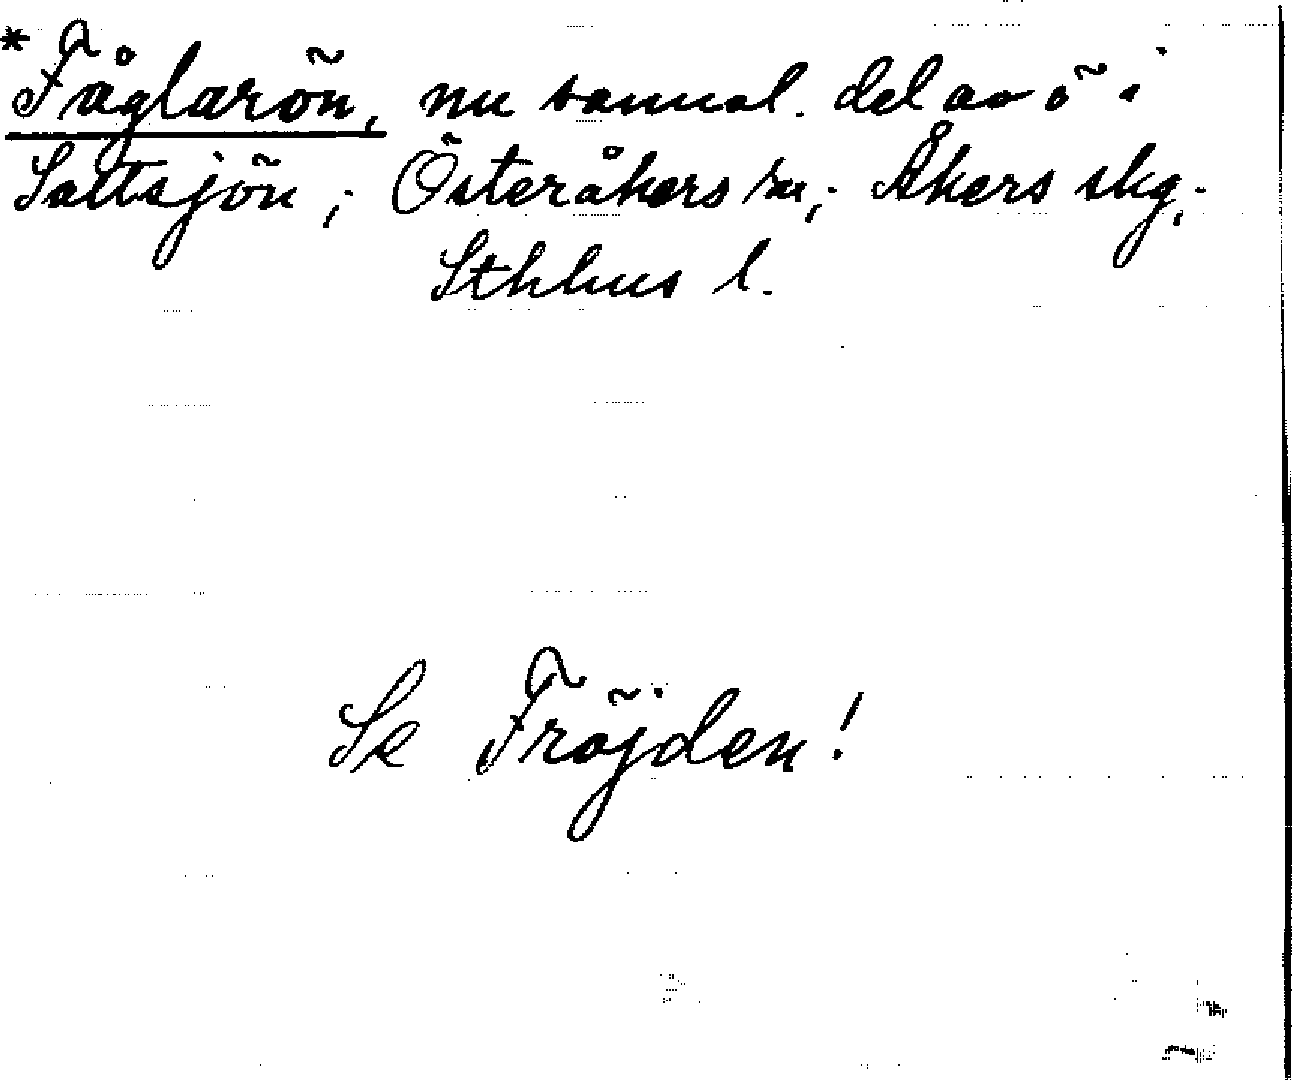 *Fåglarön, nu sannol. del av ö i
Saltsjön; Österåkers sn; Åkers skg;
Sthlms l.
Se Fröjden!